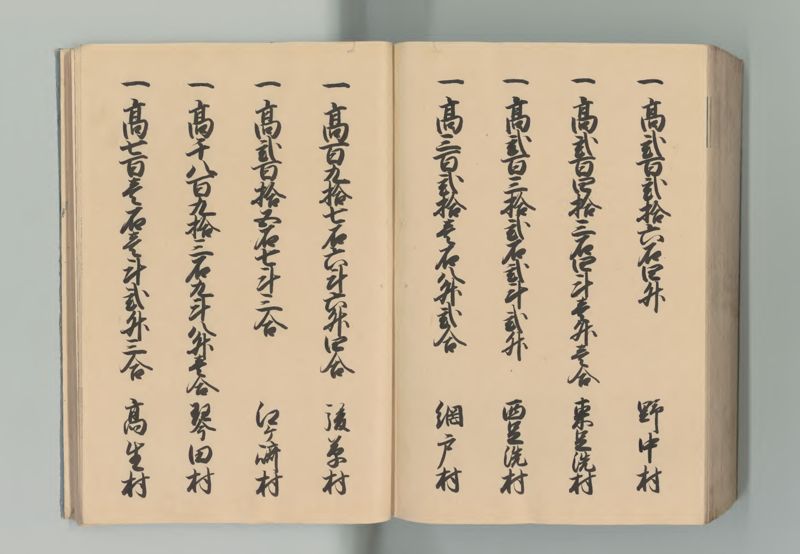 一高弐百弐拾六石四升 野中村
一高弐百四拾三石四斗壱升壱合 東足洗村
一高弐百三拾弐石弐斗弐升 西足洗村
一高三百弐拾壱石八升弐合 網戸村
一高百九拾七石六斗六升四合 後草村
一高弐百拾五石七斗三合 江ケ崎村
一高千八百九拾三石九斗八升壱合 琴田村
一高七百壱石壱斗弐升三合 高生村